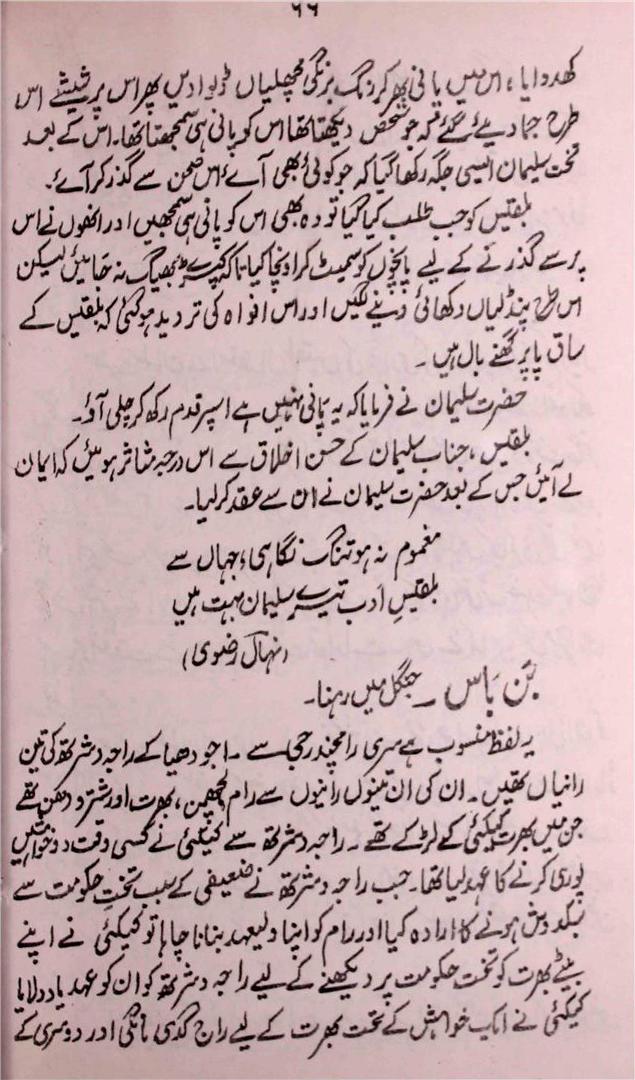 ۶۶
کھدوایا، اس میں پانی بھر کر رنگ برنگی مچھلیاں ڈلوادیں پھر اس پر شیشے اس
طرح جما دیئے گئے کہ جو شخص دیکھتا تھا اس کو پانی ہی سمجھتا تھا۔ اس کے بعد
تخت سلیمان ایسی جگہ رکھا گیا کہ جو کوئی بھی آئے اس صحن سے گذر کر آئے۔
بلقیس کو جب طلب کیا گیا تو وہ بھی اس کو پانی ہی سمجھیں اور انھوں نے اس
پر سے گذرنے کے لیے پائچوں کو سمیٹ کر اونچا کیا تاکہ کپڑے بھیگ نہ جائیں لیکن
اس طرح پنڈلیاں دکھائی دینے لگیں اور اس افواہ کی تردید ہو گئی کہ بلقیس کے
ساق پا پر گھنے بال ہیں۔
حضرت سلیمان نے فرمایا کہ یہ پانی نہیں ہے اسپر قدم رکھ کر چلی آؤ۔
بلقیس، جناب سلیمان کے حسن اخلاق سے اس درجہ متاثر ہوئیں کہ ایمان
لے آئیں جس کے بعد حضرت سلیمان نے ان سے عقد کر لیا۔
مغموم نہ ہو تنگ نگاہیِ جہاں سے
بلقیسِ ادب تیرے سلیمان بہت ہیں
(نہال رضوی)
بَن بَاس ۔ جنگل میں رہنا۔
یہ لفظ منسوب ہے سری رامچندر جی سے ۔ اجودھیا کے راجہ دشرتھ کی تین
رانیاں تھیں۔ ان کی ان تینوں رانیوں سے رام لچھمن، بھرت اور شتر ودھن تھے
جن میں بھرت کیکئی کے لڑکے تھے ۔ راجہ دشرتھ سے کیکئی نے کسی وقت دو خواہشیں
پوری کرنے کا عہد لیا تھا۔ جب راجہ دشرتھ نے ضعیفی کے سبب تختِ حکومت سے
سبکدوش ہونے کا ارادہ کیا اور رام کو اپنا ولیعہد بنانا چاہا تو کیکئی نے اپنے
بیٹے بھرت کو تخت حکومت پر دیکھنے کے لیے راجہ دشرتھ کو ان کو عہد یاد دلایا
کیکئی نے ایک خواہش کے تحت بھرت کے لیے راج گدی مانگی اور دوسری کے